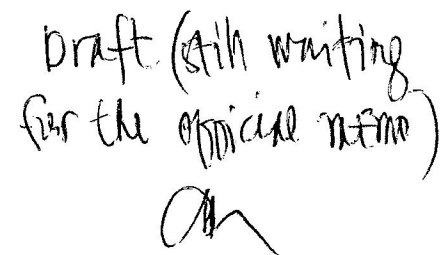 Draft (still waiting
for the official memo)